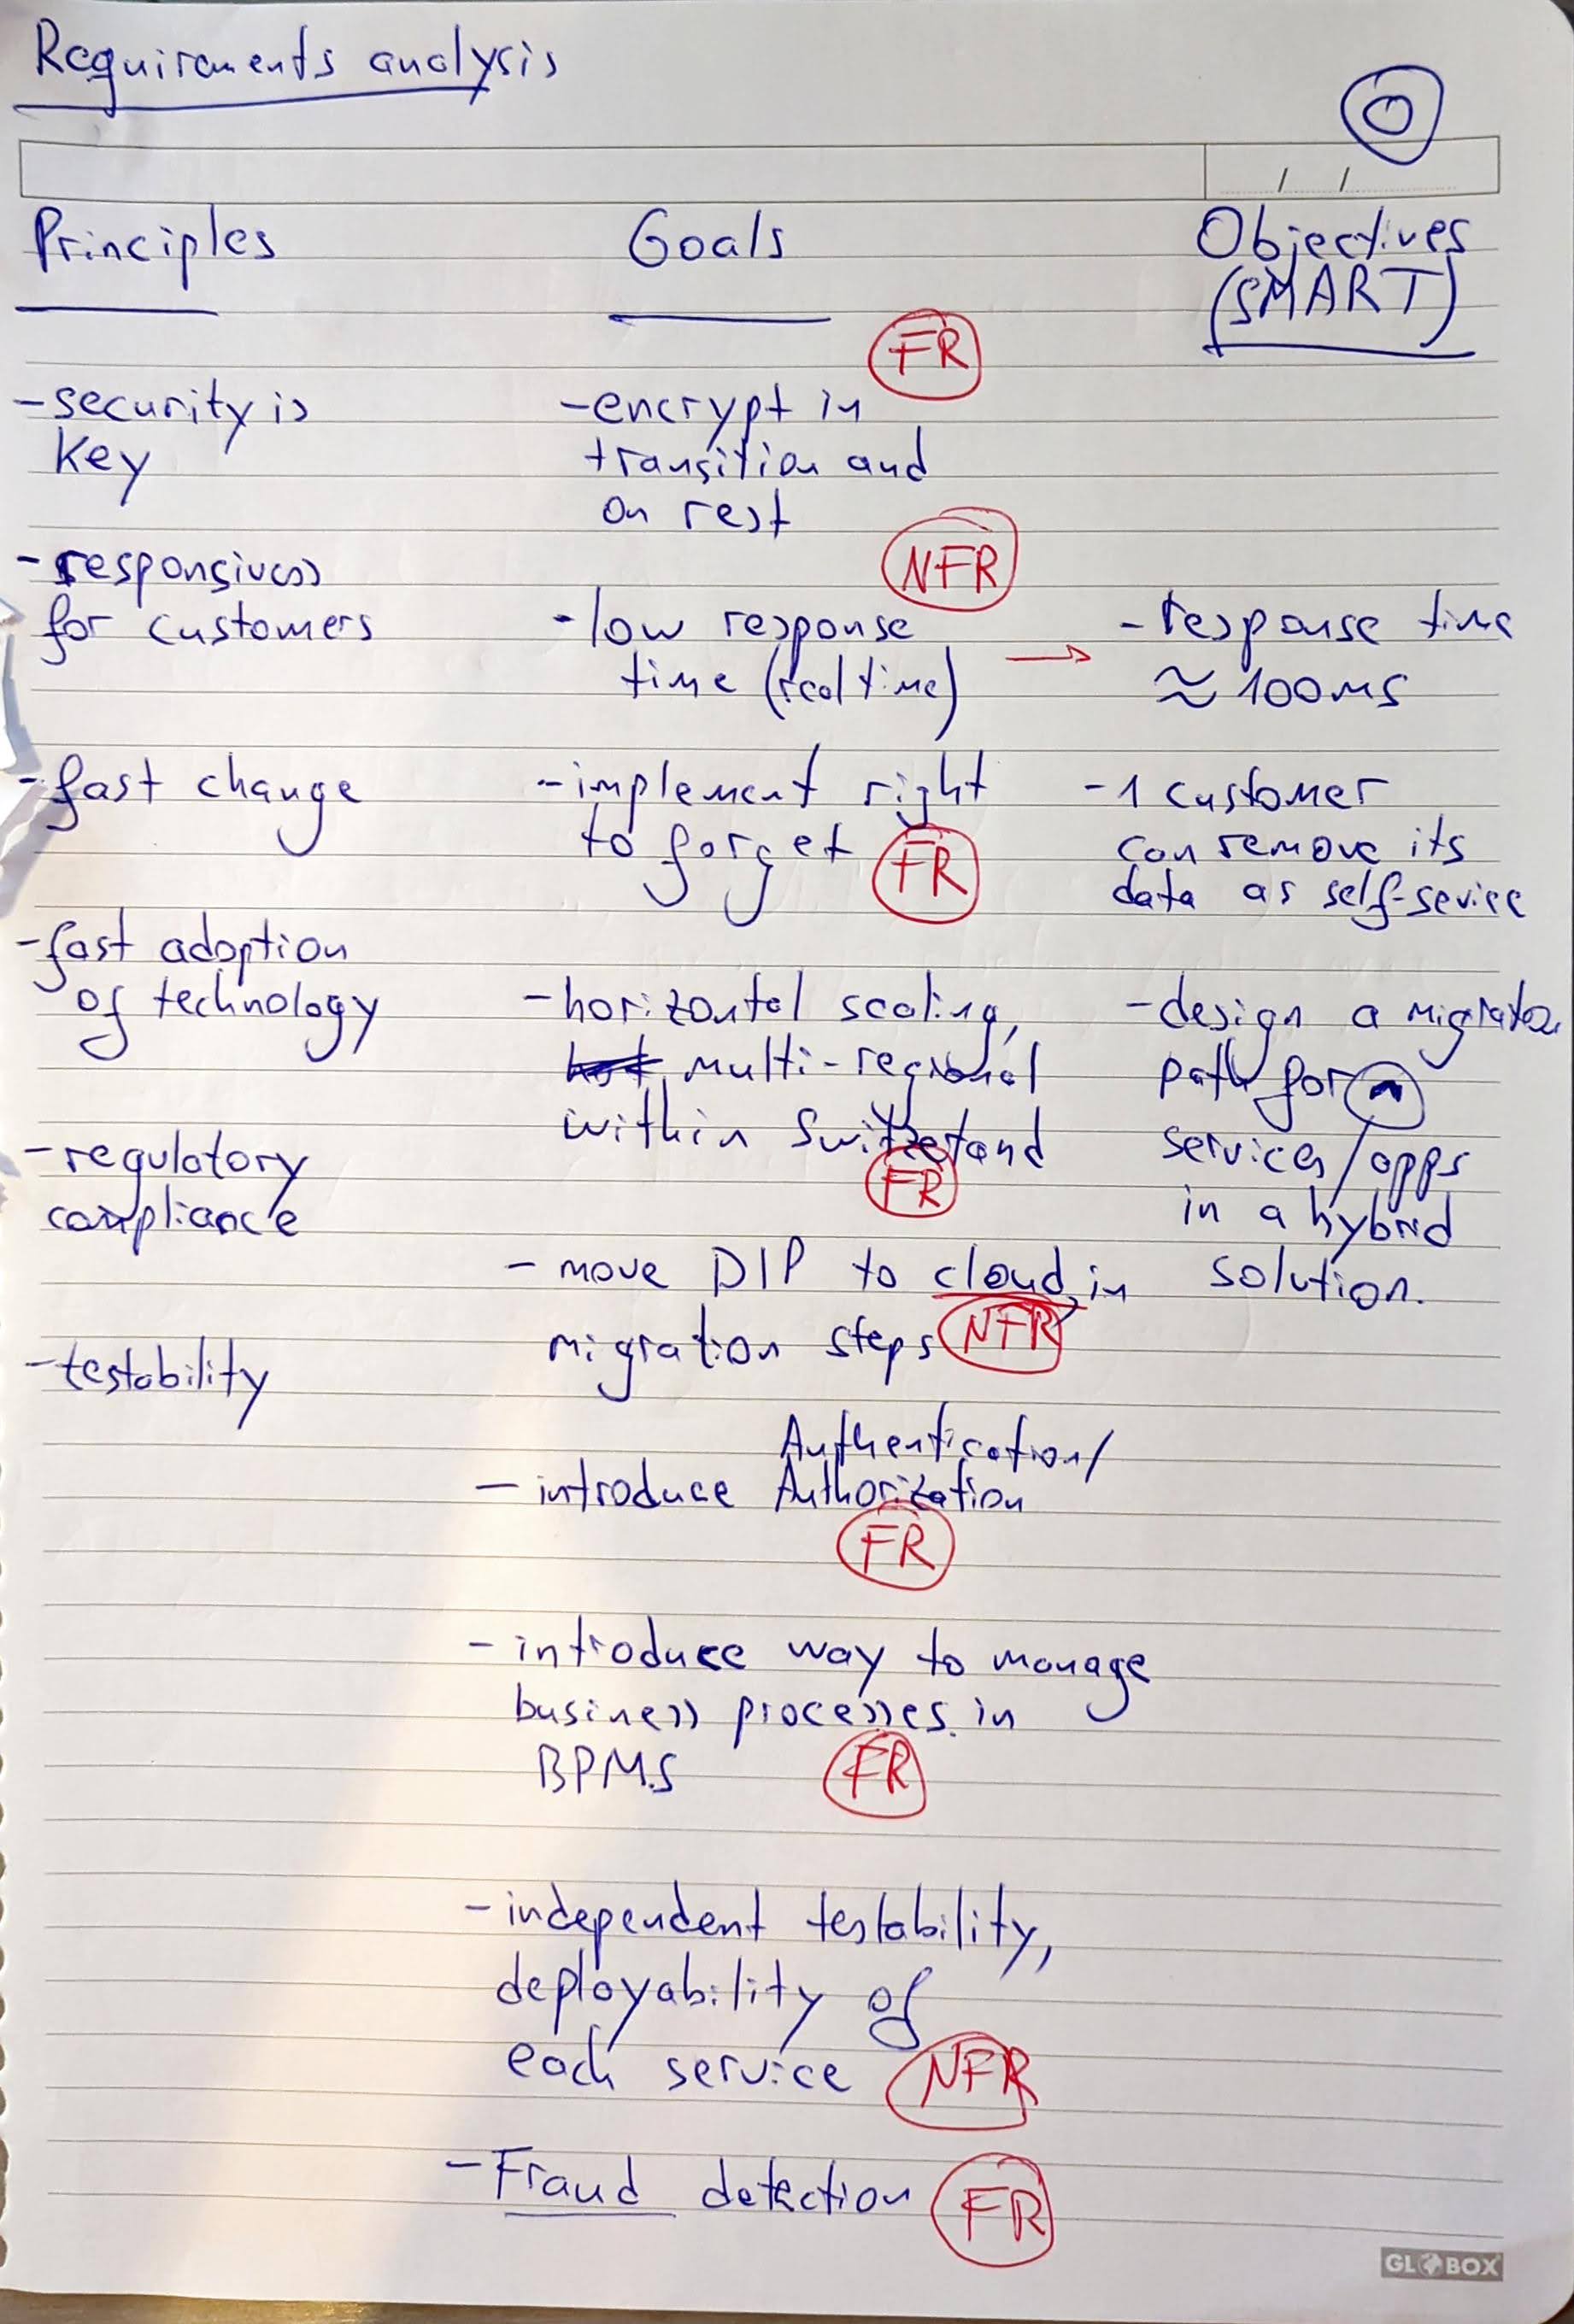 Requirements analysis
0
/ /
Principles
- security is
key
- responsiveness
for customers
- fast change
- fast adoption
of technology
- regulatory
compliance
- testability
Goals
FR
- encrypt in
transition and
on rest
NFR
- low response
time (real time)
→
- implement right
to forget FR
- horizontal scaling,
multi-regional
within Switzerland
FR
- move DIP to cloud, in
migration steps NFR
Authentication/
- introduce Authorization
FR
- introduce way to manage
business processes in
BPMS FR
- independent testability,
deployability of
each service NFR
- Fraud detection FR
Objectives
(SMART)
- response time
≈ 100ms
- 1 customer
can remove its
data as self-sevice
- design a migration
path for
services/apps
in a hybrid
solution.
GLOBOX